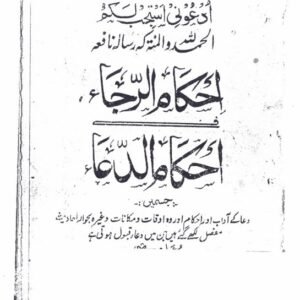 اُدْعُوْنِیْ اَسْتَجِبْ لَکُمْ
الحمد للہ والمنۃ کہ رسالہ نافعہ
احکام الرجاء
فی
احکام الدعاء
جسمیں
دعا کے آداب اور احکام اور وہ اوقات و مکانات وغیرہ بحوالہ احادیث
مفصل لکھے گئے ہیں جن میں دعا قبول ہوتی ہے